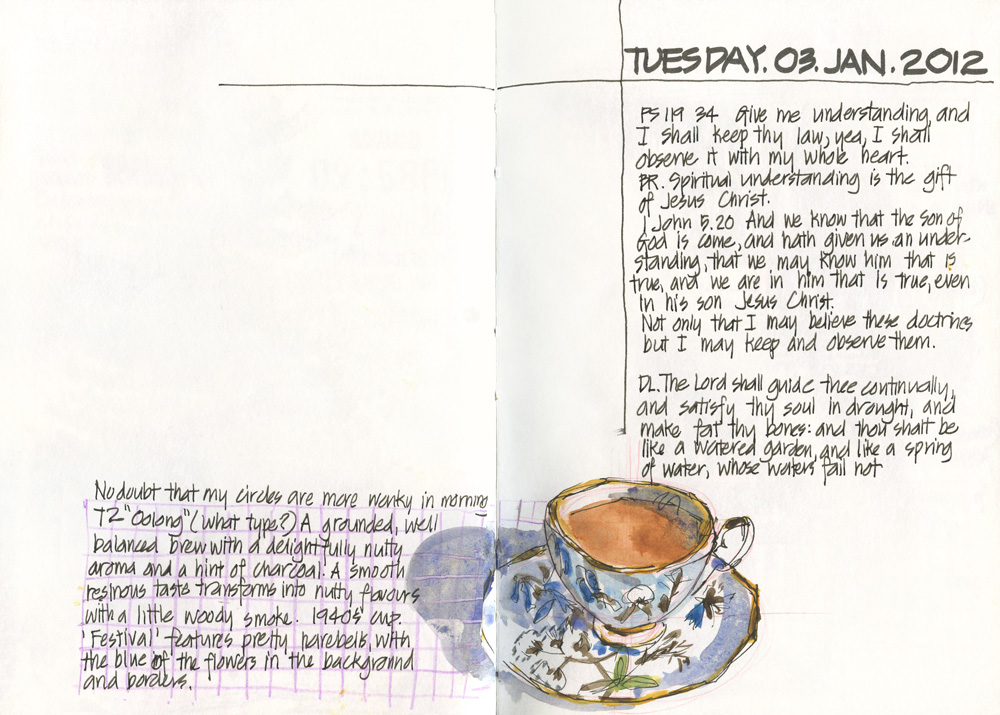 No doubt that my circles are more wonky in morning
T2 "Oolong" (what type?) A grounded, well
balanced brew with a delightfully nutty
aroma and a hint of charcoal. A smooth
resinous taste transforms into nutty flavours
with a little woody smoke. 1940s' cup.
'Festival' features pretty harebells, with
the blue of the flowers in the background
and borders.
TUESDAY. 03. JAN. 2012
PS 119 34 Give me understanding, and
I shall keep thy law, yea, I shall
observe it with my whole heart.
BR. Spiritual understanding is the gift
of Jesus Christ.
1 John 5.20 And we know that the son of
God is come, and hath given us an under-
standing, that we may know him that is
true, and we are in him that is true, even
in his son Jesus Christ.
Not only that I may believe these doctrines
but I may keep and observe them.
DL. The Lord shall guide thee continually,
and satisfy thy soul in drought, and
make fat thy bones: and thou shalt be
like a watered garden, and like a spring
of water, whose waters fail not